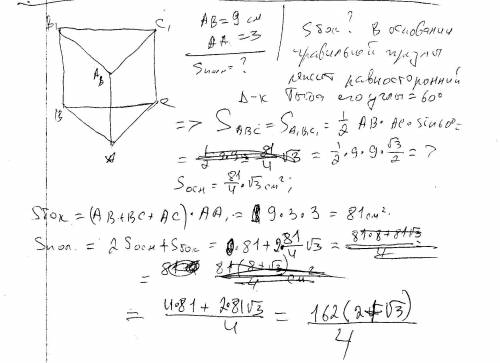 B₁ C₁
A₁
B C
A
AB = 9 см
AA₁ = 3
Sпол = ?
Sбок? В основании
правильной призмы
лежит равносторонний
Δ-к Тогда его углы = 60°
=> S_ABC = S_A₁B₁C₁ = 1/2 AB · AC · sin60° =
= 1/2 · 9 · 9 · √3/2 =>
Sосн = 81/4 · √3 см²;
Sбок = (AB + BC + AC) · AA₁ = 9 · 3 · 3 = 81 см².
Sпол. = 2Sосн + Sбок = 81 + 2 · 81/4 √3 =
= (4·81 + 2·81√3)/4 = 162(2+√3)/4